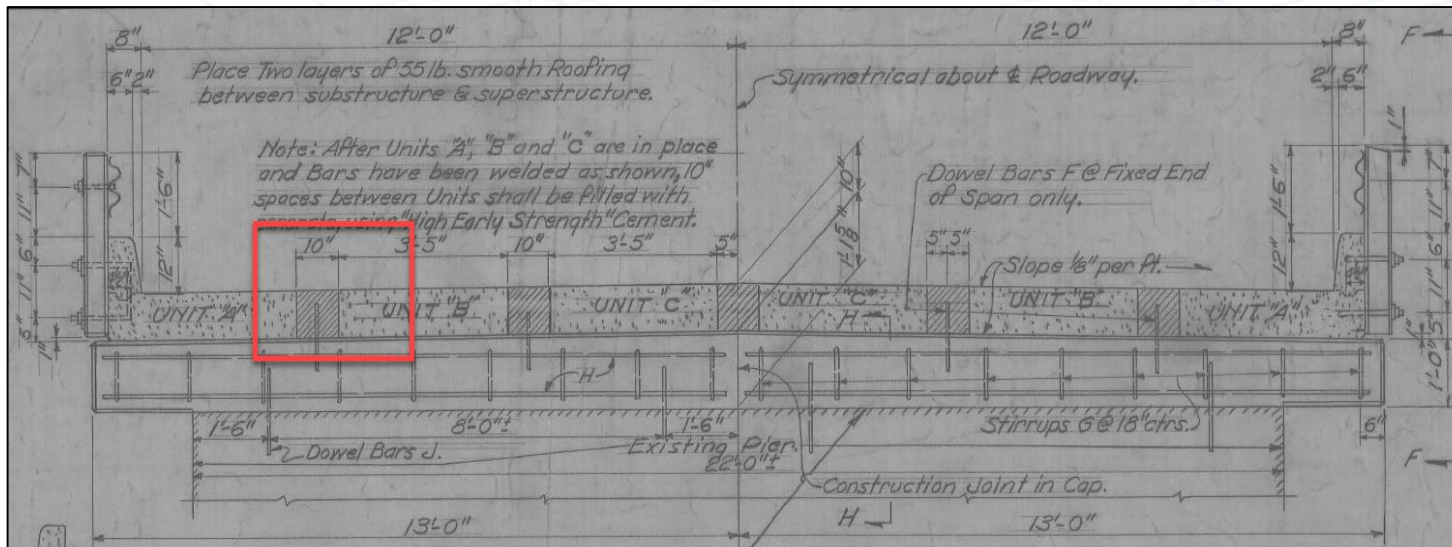 8"
12'-0"
12'-0"
8"
F
6" 2"
Place Two layers of 55 lb. smooth Roofing
between substructure & superstructure.
Symmetrical about ℄ Roadway.
2" 6"
1"
Note: After Units "A", "B" and "C" are in place
and Bars have been welded as shown, 10"
spaces between Units shall be filled with
concrete, using "High Early Strength" Cement.
Dowel Bars F @ Fixed End
of Span only.
10"
7"
11"
6"
11"
5"
1"
1'-6"
12"
10"
3'-5"
10"
3'-5"
5"
5" 5"
Slope 1/8" per ft.
1'-6"
12"
7"
11"
6"
11"
5"
1'-0"
1"
UNIT "A"
UNIT "B"
UNIT "C"
UNIT "C"
UNIT "B"
UNIT "A"
H
H
1'-6"
8'-0"±
1'-6"
Stirrups G @ 18" ctrs.
6"
Dowel Bars J.
Existing Pier.
22'-0"±
Construction Joint in Cap.
F
H
13'-0"
13'-0"